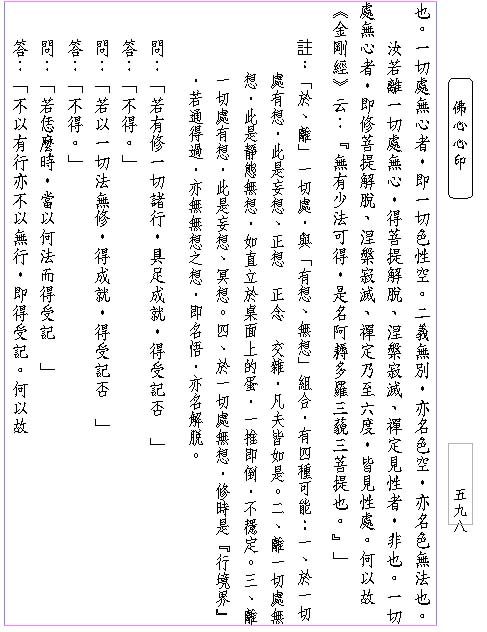 佛心心印
也。一切處無心者，即一切色性空。二義無別，亦名色空，亦名色無法也。
汝若離一切處無心，得菩提解脫、涅槃寂滅、禪定見性者，非也。一切
處無心者，即修菩提解脫、涅槃寂滅、禪定乃至六度，皆見性處。何以故
《金剛經》云：『無有少法可得，是名阿耨多羅三藐三菩提也。』」
註：「於、離」一切處，與「有想、無想」組合，有四種可能：一、於一切
處有想，此是妄想、正想　正念　交雜，凡夫皆如是。二、離一切處無
想，此是靜態無想，如直立於桌面上的蛋，一推即倒，不穩定。三、離
一切處有想，此是妄想、冥想。四、於一切處無想，修時是『行境界』
，若通得過，亦無無想之想，即名悟，亦名解脫。
問：「若有修一切諸行，具足成就，得受記否　」
答：「不得。」
問：「若以一切法無修，得成就，得受記否　」
答：「不得。」
問：「若恁麼時，當以何法而得受記　」
答：「不以有行亦不以無行，即得受記。何以故
五九八